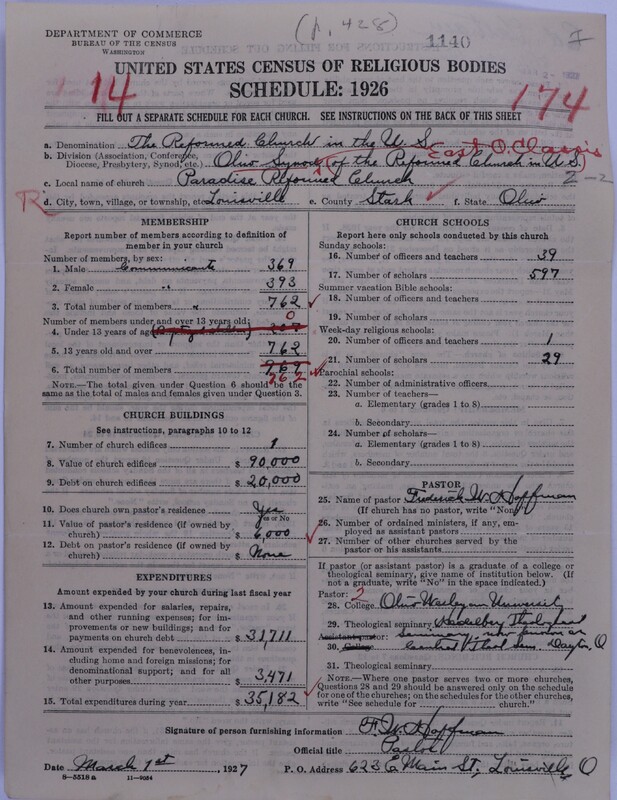 (p. 428)
DEPARTMENT OF COMMERCE
BUREAU OF THE CENSUS
WASHINGTON
1140
I
UNITED STATES CENSUS OF RELIGIOUS BODIES
SCHEDULE: 1926
14
174
FILL OUT A SEPARATE SCHEDULE FOR EACH CHURCH. SEE INSTRUCTIONS ON THE BACK OF THIS SHEET
a. Denomination The Reformed Church in the U.S.
East O. Classis
b. Division (Association, Conference, Diocese, Presbytery, Synod, etc.) Ohio Synod (of the Reformed Church in U.S.)
c. Local name of church Paradise Reformed Church
2-2
R
d. City, town, village, or township, etc. Louisville e. County Stark f. State Ohio
MEMBERSHIP
Report number of members according to definition of
member in your church
Number of members, by sex:
1. Male Communicants 369
2. Female " 393
3. Total number of members " 762
Number of members under and over 13 years old: 0
4. Under 13 years of age
5. 13 years old and over 762
6. Total number of members
762
NOTE.—The total given under Question 6 should be the
same as the total of males and females given under Question 3.
CHURCH BUILDINGS
See instructions, paragraphs 10 to 12
7. Number of church edifices 1
8. Value of church edifices $ 90,000
9. Debt on church edifices $ 20,000
10. Does church own pastor's residence Yes
Yes or No
11. Value of pastor's residence (if owned by
church) $ 6,000
12. Debt on pastor's residence (if owned by
church) $ None
EXPENDITURES
Amount expended by your church during last fiscal year
13. Amount expended for salaries, repairs,
and other running expenses; for improvements or new buildings; and for
payments on church debt $ 31,711
14. Amount expended for benevolences,
including home and foreign missions; for
denominational support; and for all
other purposes $ 3,471
15. Total expenditures during year $ 35,182
CHURCH SCHOOLS
Report here only schools conducted by this church
Sunday schools:
16. Number of officers and teachers 39
17. Number of scholars 597
Summer vacation Bible schools:
18. Number of officers and teachers
19. Number of scholars
Week-day religious schools:
20. Number of officers and teachers 1
21. Number of scholars 29
Parochial schools:
22. Number of administrative officers
23. Number of teachers—
a. Elementary (grades 1 to 8)
b. Secondary
24. Number of scholars—
a. Elementary (grades 1 to 8)
b. Secondary
PASTOR
25. Name of pastor Frederick W. Hoffman
(If church has no pastor, write "None")
26. Number of ordained ministers, if any, employed as assistant pastors
27. Number of other churches served by the
pastor or his assistants
If pastor (or assistant pastor) is a graduate of a college or
theological seminary, give name of institution below. (If
not a graduate, write "No" in the space indicated.)
Pastor: 2
28. College Ohio Wesleyan University
29. Theological seminary Heidelberg Theological
Assistant pastor: Seminary, now known as
30. College Central Theol Sem. Dayton, O
31. Theological seminary
NOTE.—Where one pastor serves two or more churches,
Questions 28 and 29 should be answered only on the schedule
for one of the churches; on the schedules for the other churches,
write "See schedule for church."
Signature of person furnishing information F. W. Hoffman
Official title Pastor
Date March 1st, 1927 P. O. Address 623 E Main St., Louisville, O
8—5518 a 11—9024